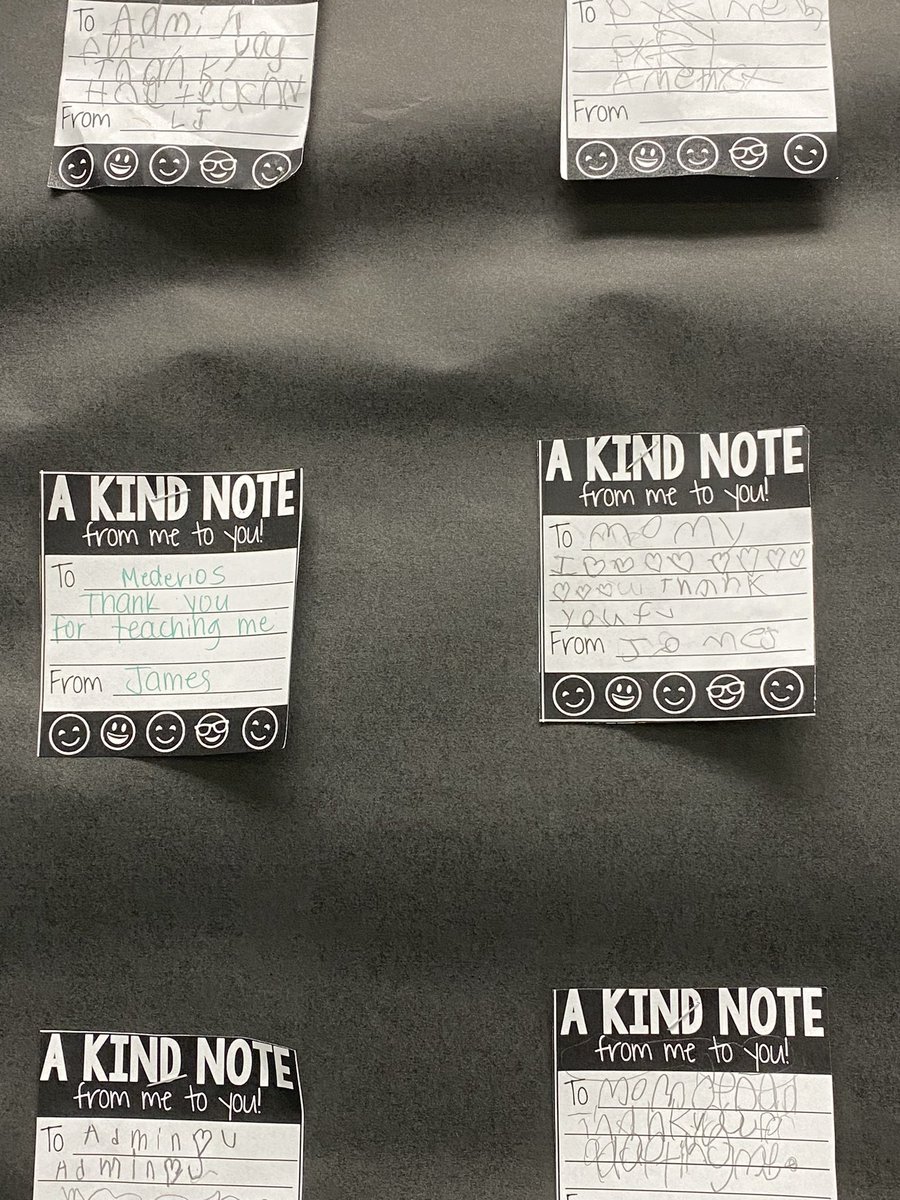 To Admin
thank you
From LJ
To
Amethist
From
A KIND NOTE
from me to you!
To Mederios
Thank you
for teaching me
From James
A KIND NOTE
from me to you!
To momy
I ♡♡♡♡ ♡♡♡♡
♡♡♡u Thank
you fu
From James
A KIND NOTE
from me to you!
To Admin ♡ u
Admin ♡ u
A KIND NOTE
from me to you!
To mom
thank you for
adopting me.